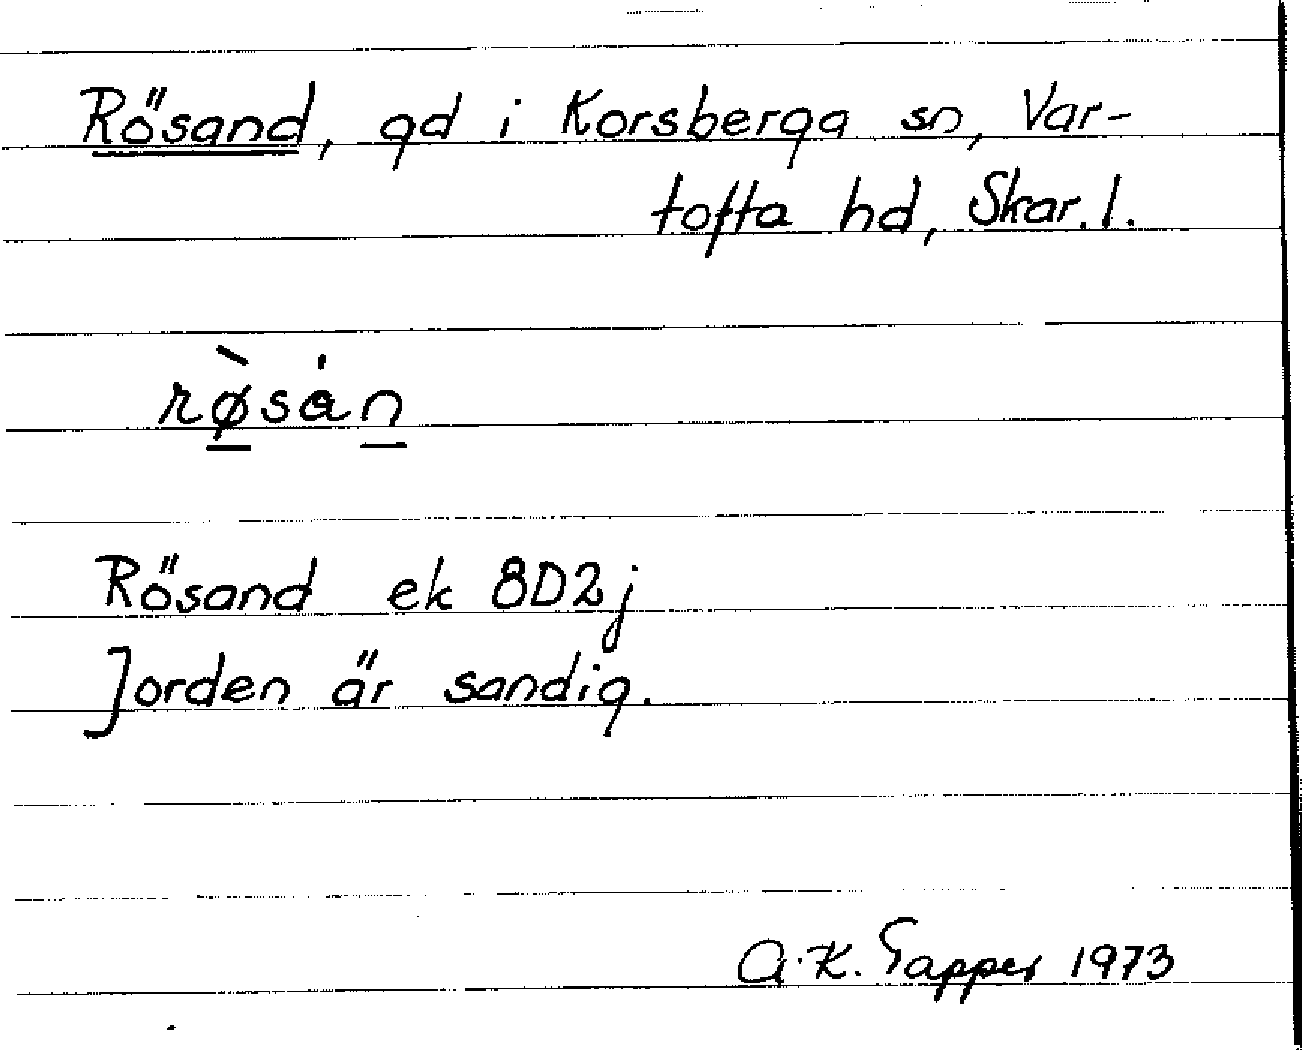 Rösand, gd i Korsberga sn, Var-
tofta hd, Skar. l.
rø̀sȧn
Rösand ek 8D2j
Jorden är sandig.
A.K. Tapper 1973